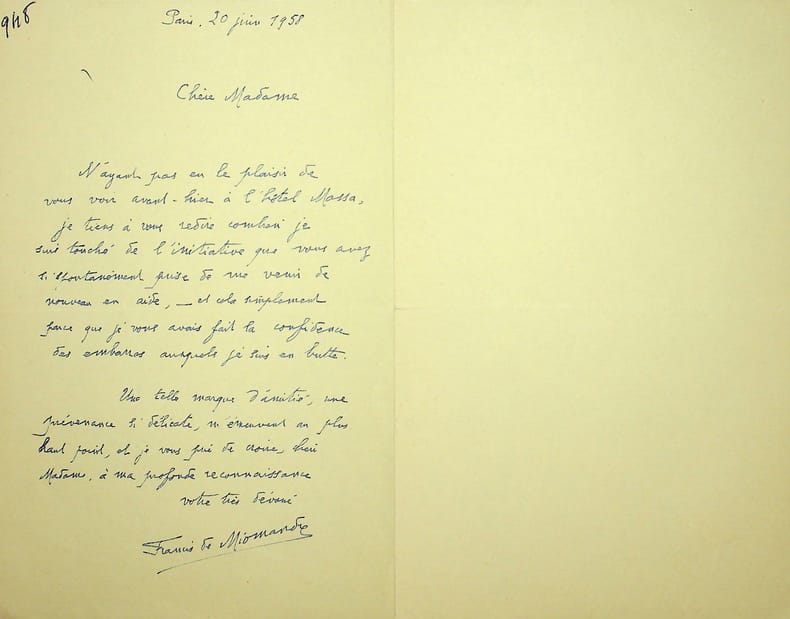 948
Paris, 20 juin 1958
Chère Madame
N'ayant pas eu le plaisir de
vous voir avant-hier à l'hôtel Massa,
je tiens à vous redire combien je
suis touché de l'initiative que vous avez
si spontanément prise de me venir de
nouveau en aide, — et cela simplement
parce que je vous avais fait la confidence
des embarras auxquels je suis en butte.
Une telle marque d'amitié, une
prévenance si délicate, m'émeuvent au plus
haut point, et je vous prie de croire, chère
Madame, à ma profonde reconnaissance
votre très dévoué
Francis de Miomandre